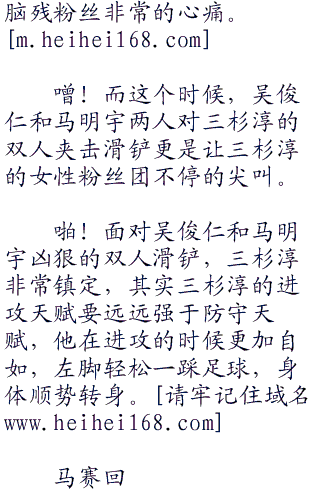 脑残粉丝非常的心痛。
[m.heihei168.com]
噌！而这个时候，吴俊
仁和马明宇两人对三杉淳的
双人夹击滑铲更是让三杉淳
的女性粉丝团不停的尖叫。
啪！面对吴俊仁和马明
宇凶狠的双人滑铲，三杉淳
非常镇定，其实三杉淳的进
攻天赋要远远强于防守天
赋，他在进攻的时候更加自
如，左脚轻松一踩足球，身
体顺势转身。[请牢记住域名
www.heihei168.com]
马赛回